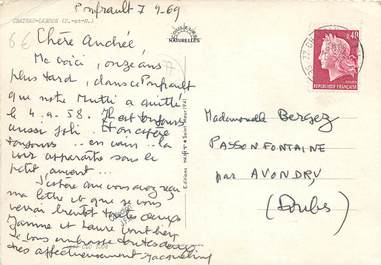 Ponfrault 7 9-69
CHATEAU-LANDON (S.-et-M.)
Chère Andrée
NATURELLES
Me voici, onze ans
plus tard, dans ce Ponfrault
que notre Mutti a quitté
le 4.9.58. Il est toujours
aussi joli. Et on espère
toujours... en vain... la
voir apparaître sous le
petit auvent...
J'espère que vous avez reçu
ma lettre et que je vous
verrai bientôt toutes deux
Je vous embrasse toutes deux
très affectueusement Jacqueline
0,40
REPUBLIQUE FRANÇAISE
Mademoiselle Bergez
PASSONFONTAINE
par AVONDRY
(Doubs)